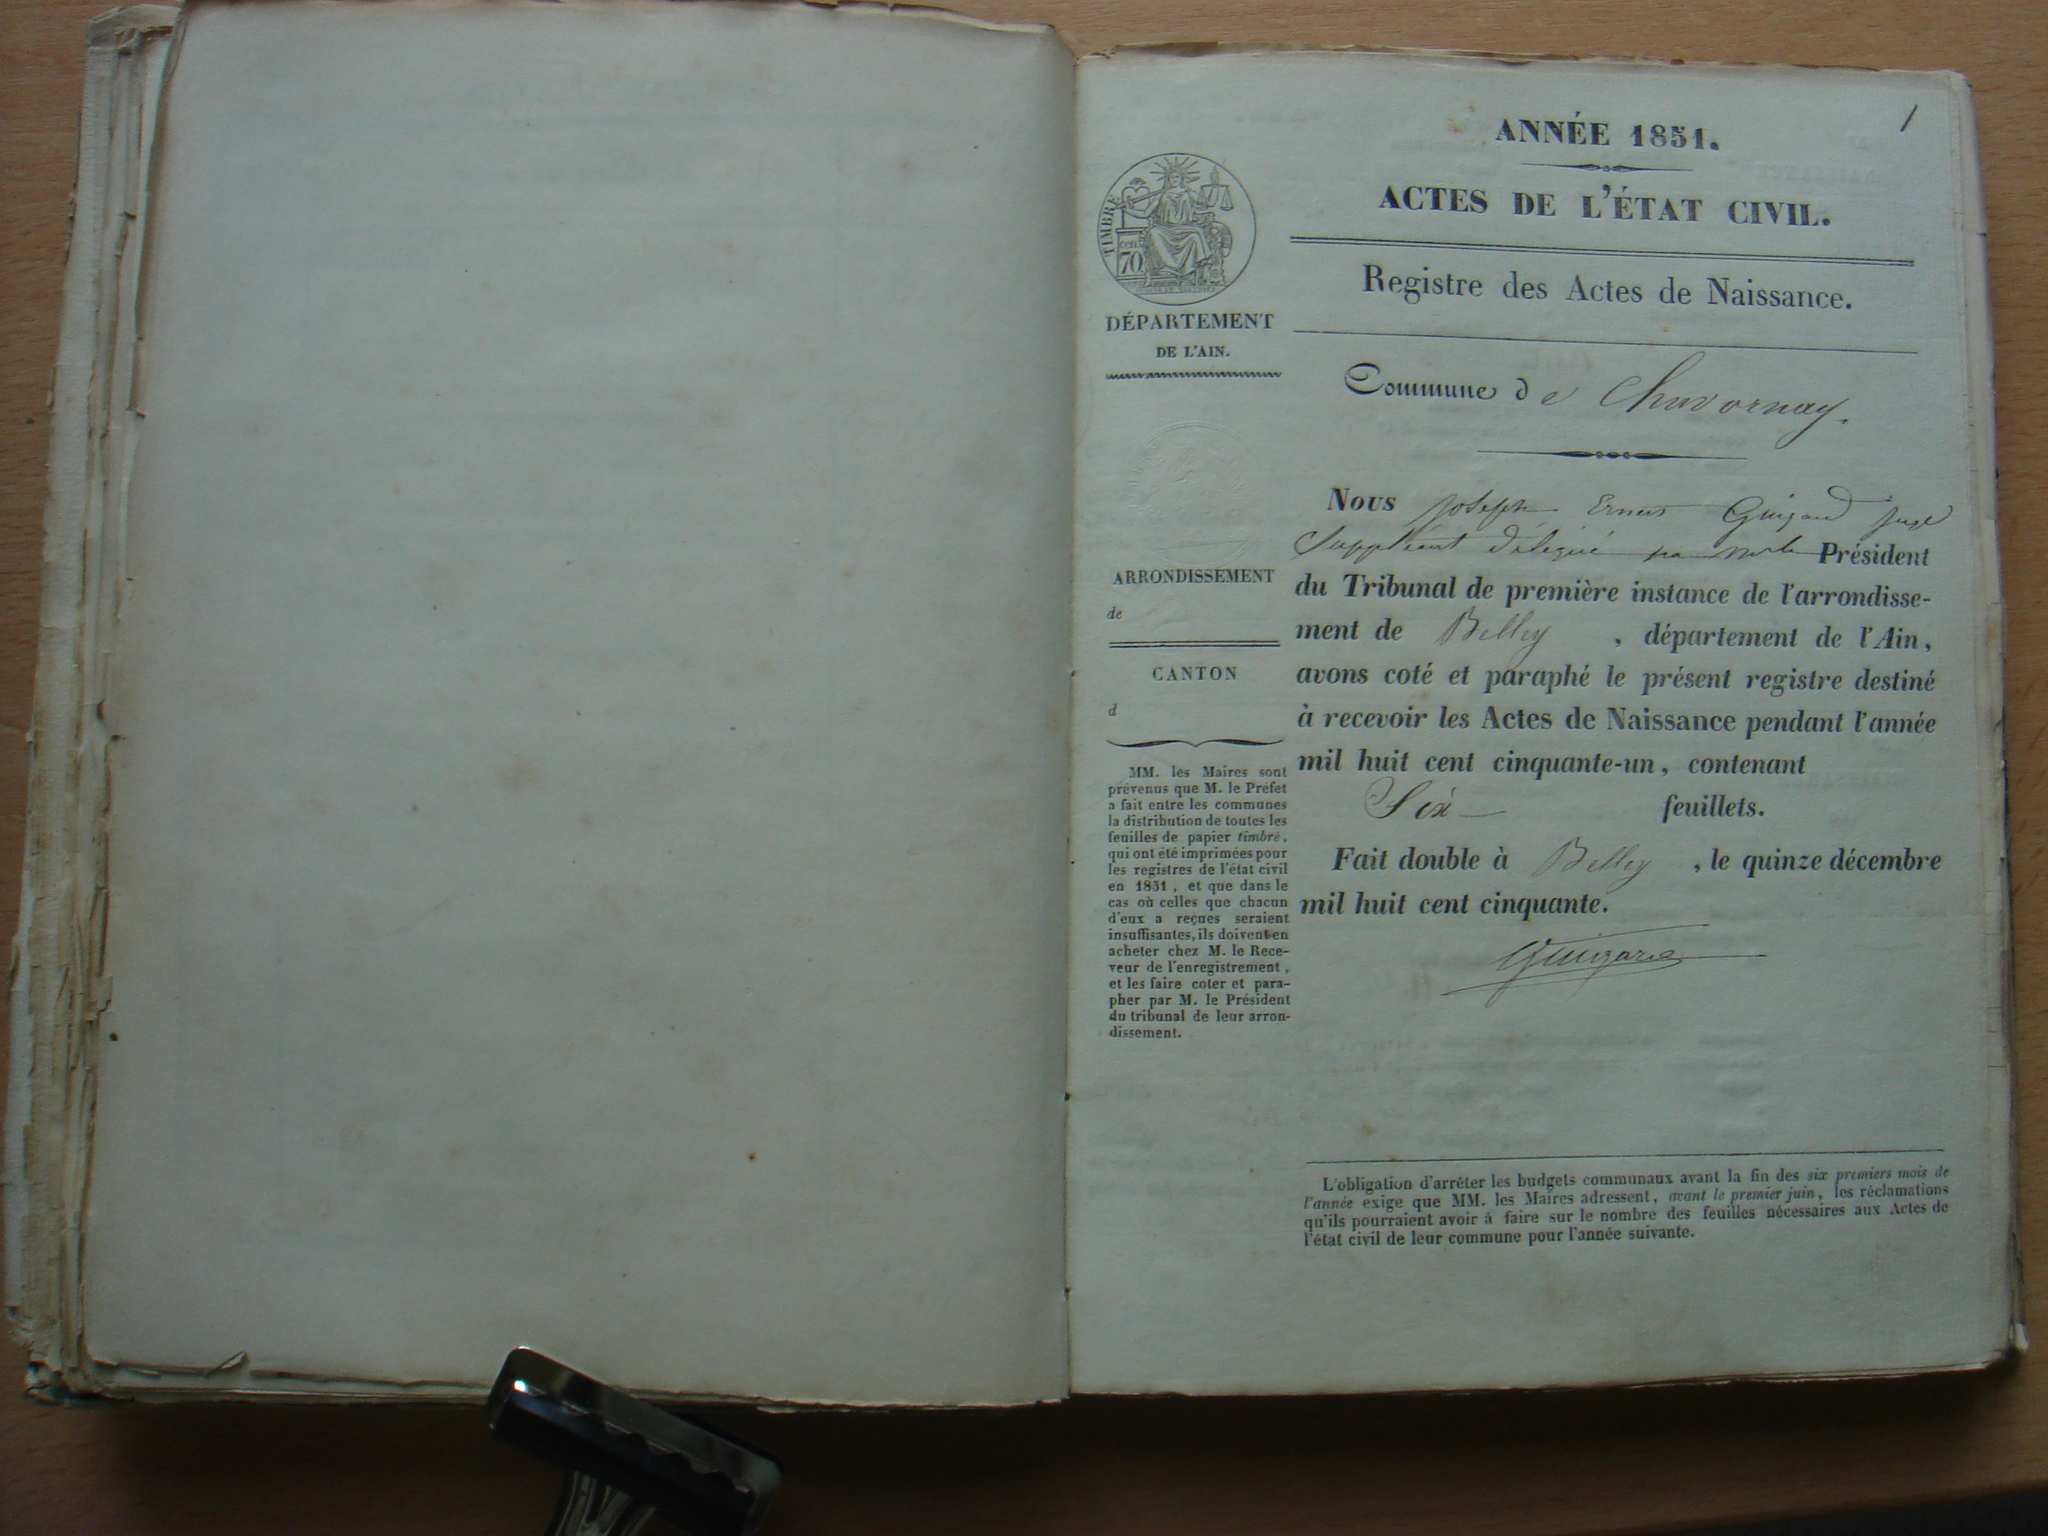 1
ANNÉE 1851.
ACTES DE L'ÉTAT CIVIL.
Registre des Actes de Naissance.
Commune de Chavornay.
TIMBRE
cen.
70
DÉPARTEMENT
DE L'AIN.
ARRONDISSEMENT
de
CANTON
d
MM. les Maires sont
prévenus que M. le Préfet
a fait entre les communes
la distribution de toutes les
feuilles de papier timbré,
qui ont été imprimées pour
les registres de l'état civil
en 1851, et que dans le
cas où celles que chacun
d'eux a reçues seraient
insuffisantes, ils doivent en
acheter chez M. le Rece-
veur de l'enregistrement,
et les faire coter et para-
pher par M. le Président
du tribunal de leur arron-
dissement.
Nous Joseph Ernest Guigard juge
Suppléant délégué par Mr le Président
du Tribunal de première instance de l'arrondisse-
ment de Belley, département de l'Ain,
avons coté et paraphé le présent registre destiné
à recevoir les Actes de Naissance pendant l'année
mil huit cent cinquante-un, contenant
Six feuillets.
Fait double à Belley, le quinze décembre
mil huit cent cinquante.
Guigard
L'obligation d'arrêter les budgets communaux avant la fin des six premiers mois de
l'année exige que MM. les Maires adressent, avant le premier juin, les réclamations
qu'ils pourraient avoir à faire sur le nombre des feuilles nécessaires aux Actes de
l'état civil de leur commune pour l'année suivante.